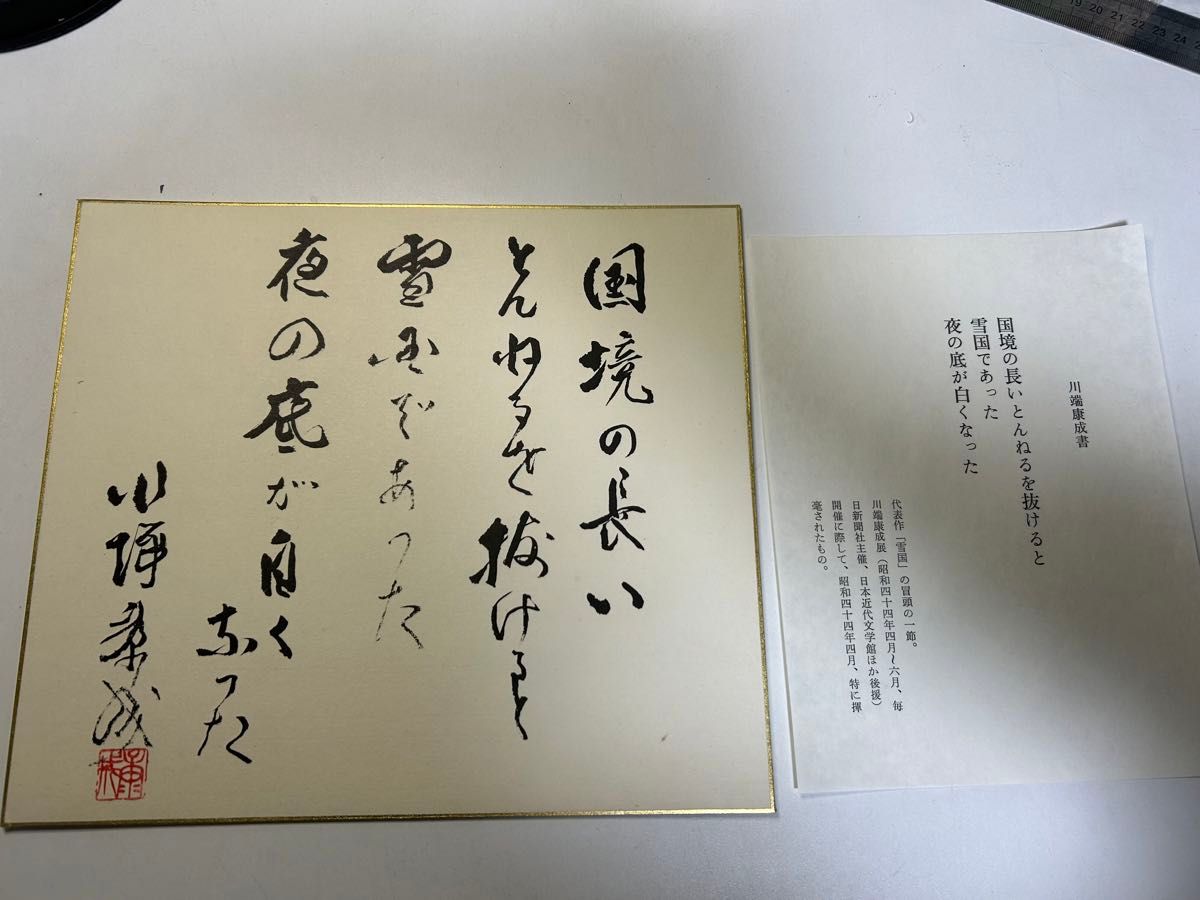 国境の長い
とんねるを抜けると
雪国であった
夜の底が白く
なった
川端康成
川端康成書
国境の長いとんねるを抜けると
雪国であった
夜の底が白くなった
代表作「雪国」の冒頭の一節。
川端康成展（昭和四十四年四月～六月、毎
日新聞社主催、日本近代文学館ほか後援）
開催に際して、昭和四十四年四月、特に揮
毫されたもの。
19 20 21 22 23 24